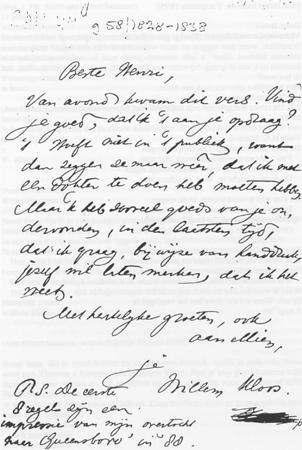 g 58) 1828-1838
Beste Henri,
Van avond kwam dit vers. Vind
je goed, dat ik 't aan je opdraag?
't Hoeft niet in 't publiek, want
dan zeggen ze maar weer, dat ik met
een dokter te doen heb moeten hebben.
Maar ik heb zooveel goeds van je on,
dervonden, in den laatsten tijd,
dat ik graag, bij wijze van handdruk,
jezelf wil laten merken, dat ik het
weet.
Met hartelijke groeten, ook
aan Mien,
je
Willem Kloos.
P.S. De eerste
8 regels zijn een
impressie van mijn overtocht
naar Queensboro' in '88.